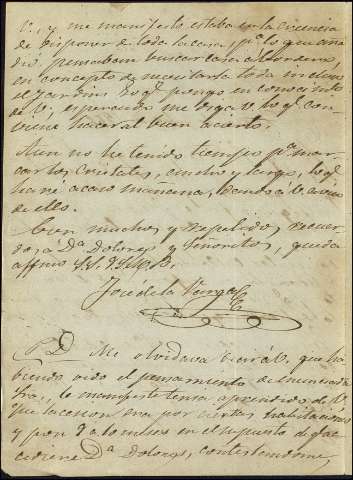 V., y me manifestó estaba en la creencia
de disponer de toda la casa, pª. lo que aña
dió, pensaban buscar casa al ordera,
en concepto de necesitarla toda incluso
el jardin: Lo ql. pongo en conocimto.
de V., esperando me diga V. lo ql. con
viene hacer al buen acierto.
Aun no he tenido tiempo pª. mar
car los cristales, ancho y largo, lo ql.
haré acaso mañana, dando á V. aviso
de ello.
Con muchos y repetidos recuer
dos, a Dª. Dolores y Señoritos, queda
affmo. S.S. Q.S.M.B.
José de la Vega
P.D. Me olvidava decir á V. que ha
biendo oido el pensamiento de
le manifesté tenia aprendido de V.
que la cesion era por ciertas habitacions.
y por 7 a 10 meses en el supuesto de
Dª. Dolores, contestandome,